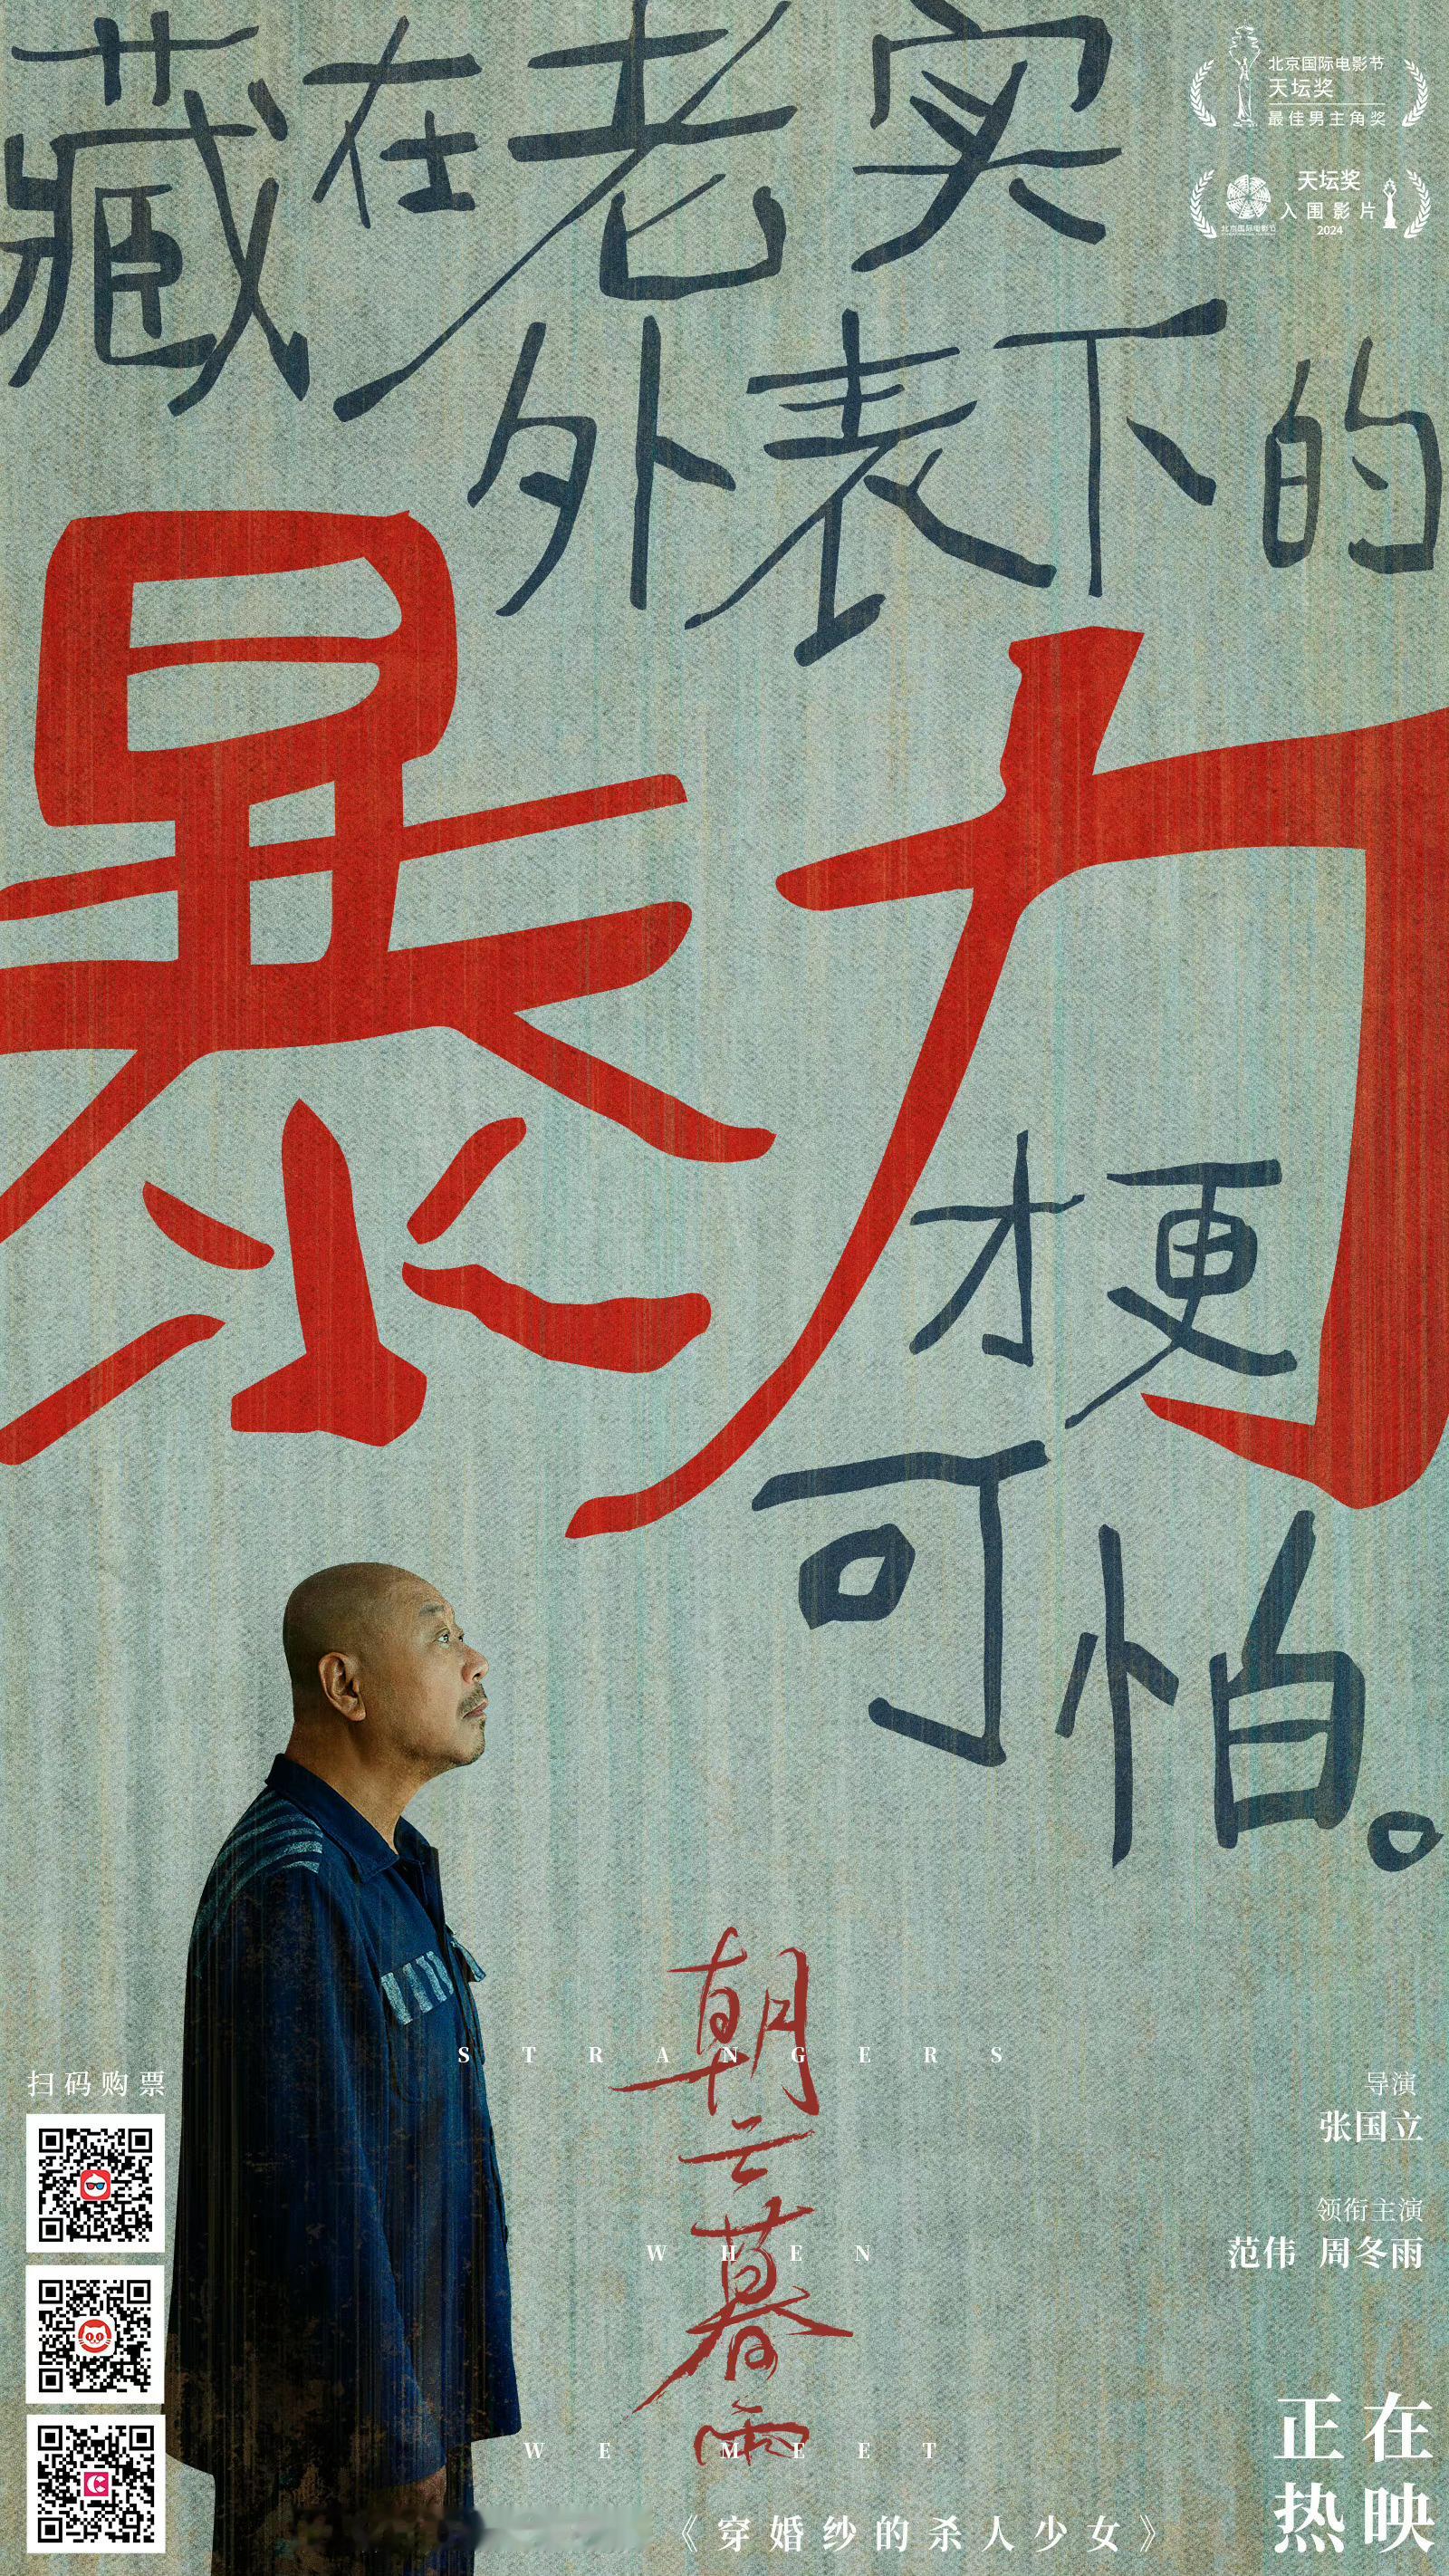 藏在老实
外表下的
暴力
才更
可怕。
北京国际电影节
天坛奖
最佳男主角奖
天坛奖
入围影片
北京国际电影节
2024
朝云暮雨
STRANGERS
WHEN
WE MEET
扫码购票
导演
张国立
领衔主演
范伟 周冬雨
《穿婚纱的杀人少女》
正在
热映